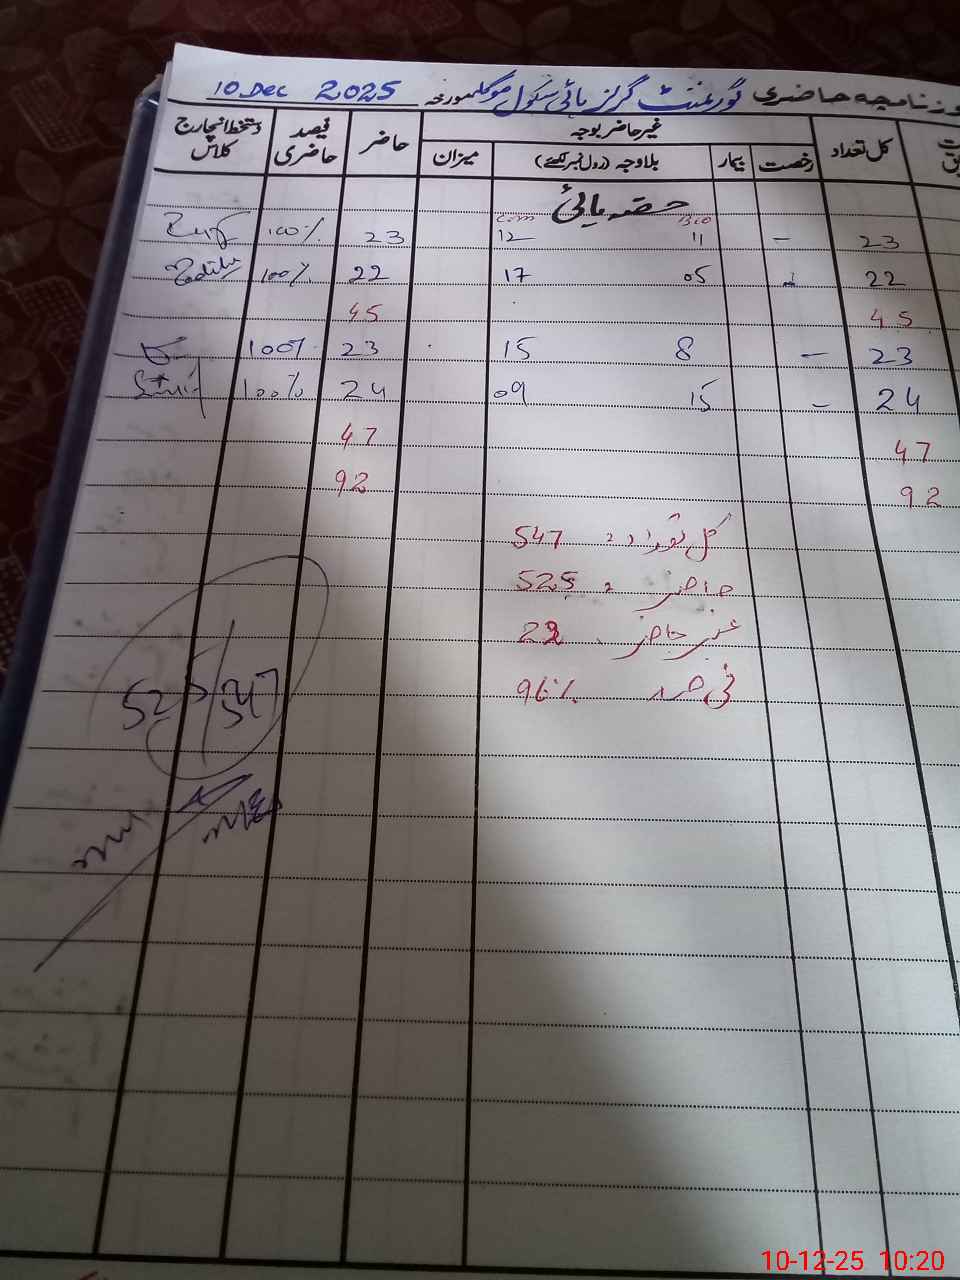 روزنامچہ حاضری گورنمنٹ گرلز ہائی سکول موکلہ مورخہ 10 Dec 2025
کل تعداد غیر حاضر بوجہ حاضر فیصد حاضری دستخط انچارج کلاس
رخصت بیمار بلاوجہ (رول نمبر لکھئے) میزان
حصہ ہائی
Com Bio
23 – 11 12 23 100%
22 05 17 22 100%
45 45
23 – 8 15 23 100%
24 – 15 09 24 100%
47 47
92 92
کل تعداد : 547
حاضر : 525
غیر حاضر 22
فی صد 96%
525/547
10-12-25 10:20